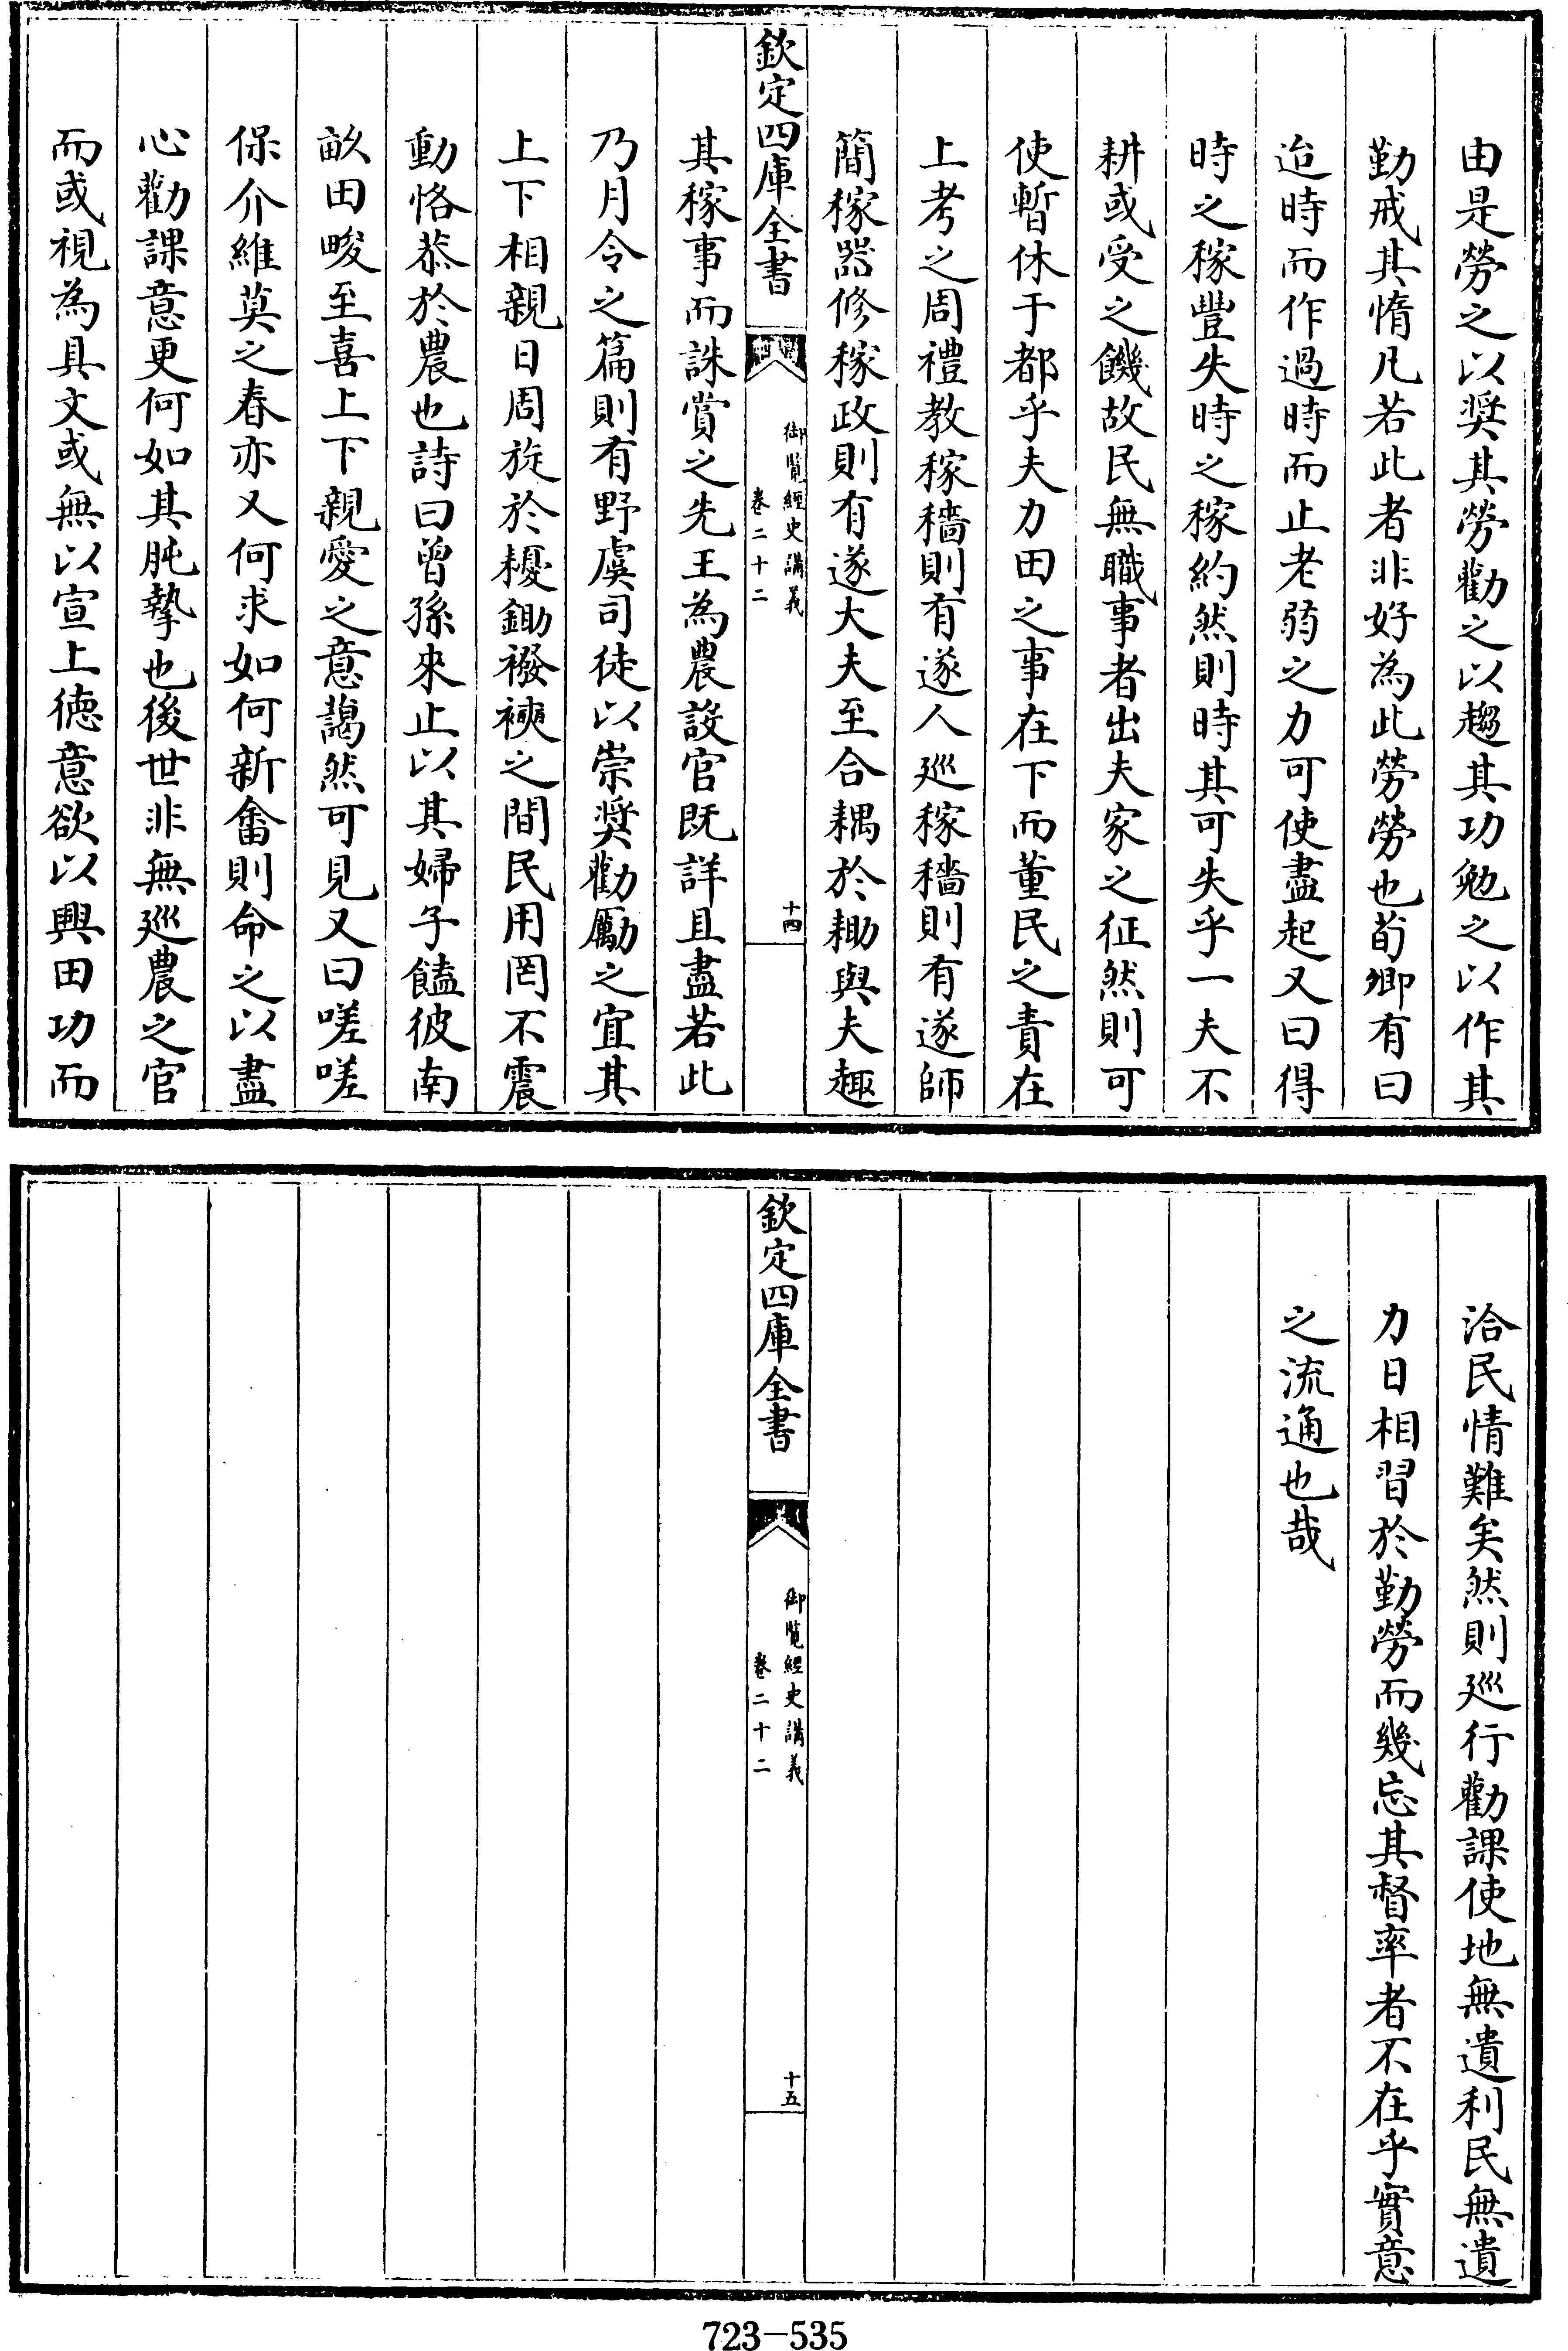 由是勞之以奬其勞勸之以趨其功勉之以作其
勤戒其惰凡若此者非好為此勞勞也荀卿有曰
迨時而作過時而止老弱之力可使盡起又曰得
時之稼豐失時之稼約然則時其可失乎一夫不
耕或受之饑故民無職事者出夫家之征然則可
使暫休于都乎夫力田之事在下而董民之責在
上考之周禮教稼穡則有遂人廵稼穡則有遂師
簡稼器修稼政則有遂大夫至合耦於耡與夫趣
欽定四庫全書
御覽經史講義
卷二十二
十四
其稼事而誅賞之先王為農設官既詳且盡若此
乃月令之篇則有野虞司徒以崇奬勸勵之宜其
上下相親日周旋於耰鋤襏襫之間民用罔不震
動恪恭於農也詩曰曾孫來止以其婦子饁彼南
畝田畯至喜上下親愛之意藹然可見又曰嗟嗟
保介維莫之春亦又何求如何新畬則命之以盡
心勸課意更何如其肫摯也後世非無廵農之官
而或視為具文或無以宣上德意欲以興田功而
洽民情難矣然則廵行勸課使地無遺利民無遺
力日相習於勤勞而幾忘其督率者不在乎實意
之流通也哉
欽定四庫全書
御覽經史講義
卷二十二
十五
723-535